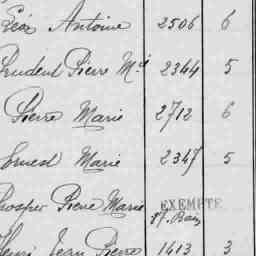 Léon Antoine 2506 6
Prudent Pierre M.ie 2344 5
Pierre Marie 2712 6
Ernest Marie 2347 5
Prosper Pierre Marie EXEMPTÉ
Henri Jean Pierre 1413 3